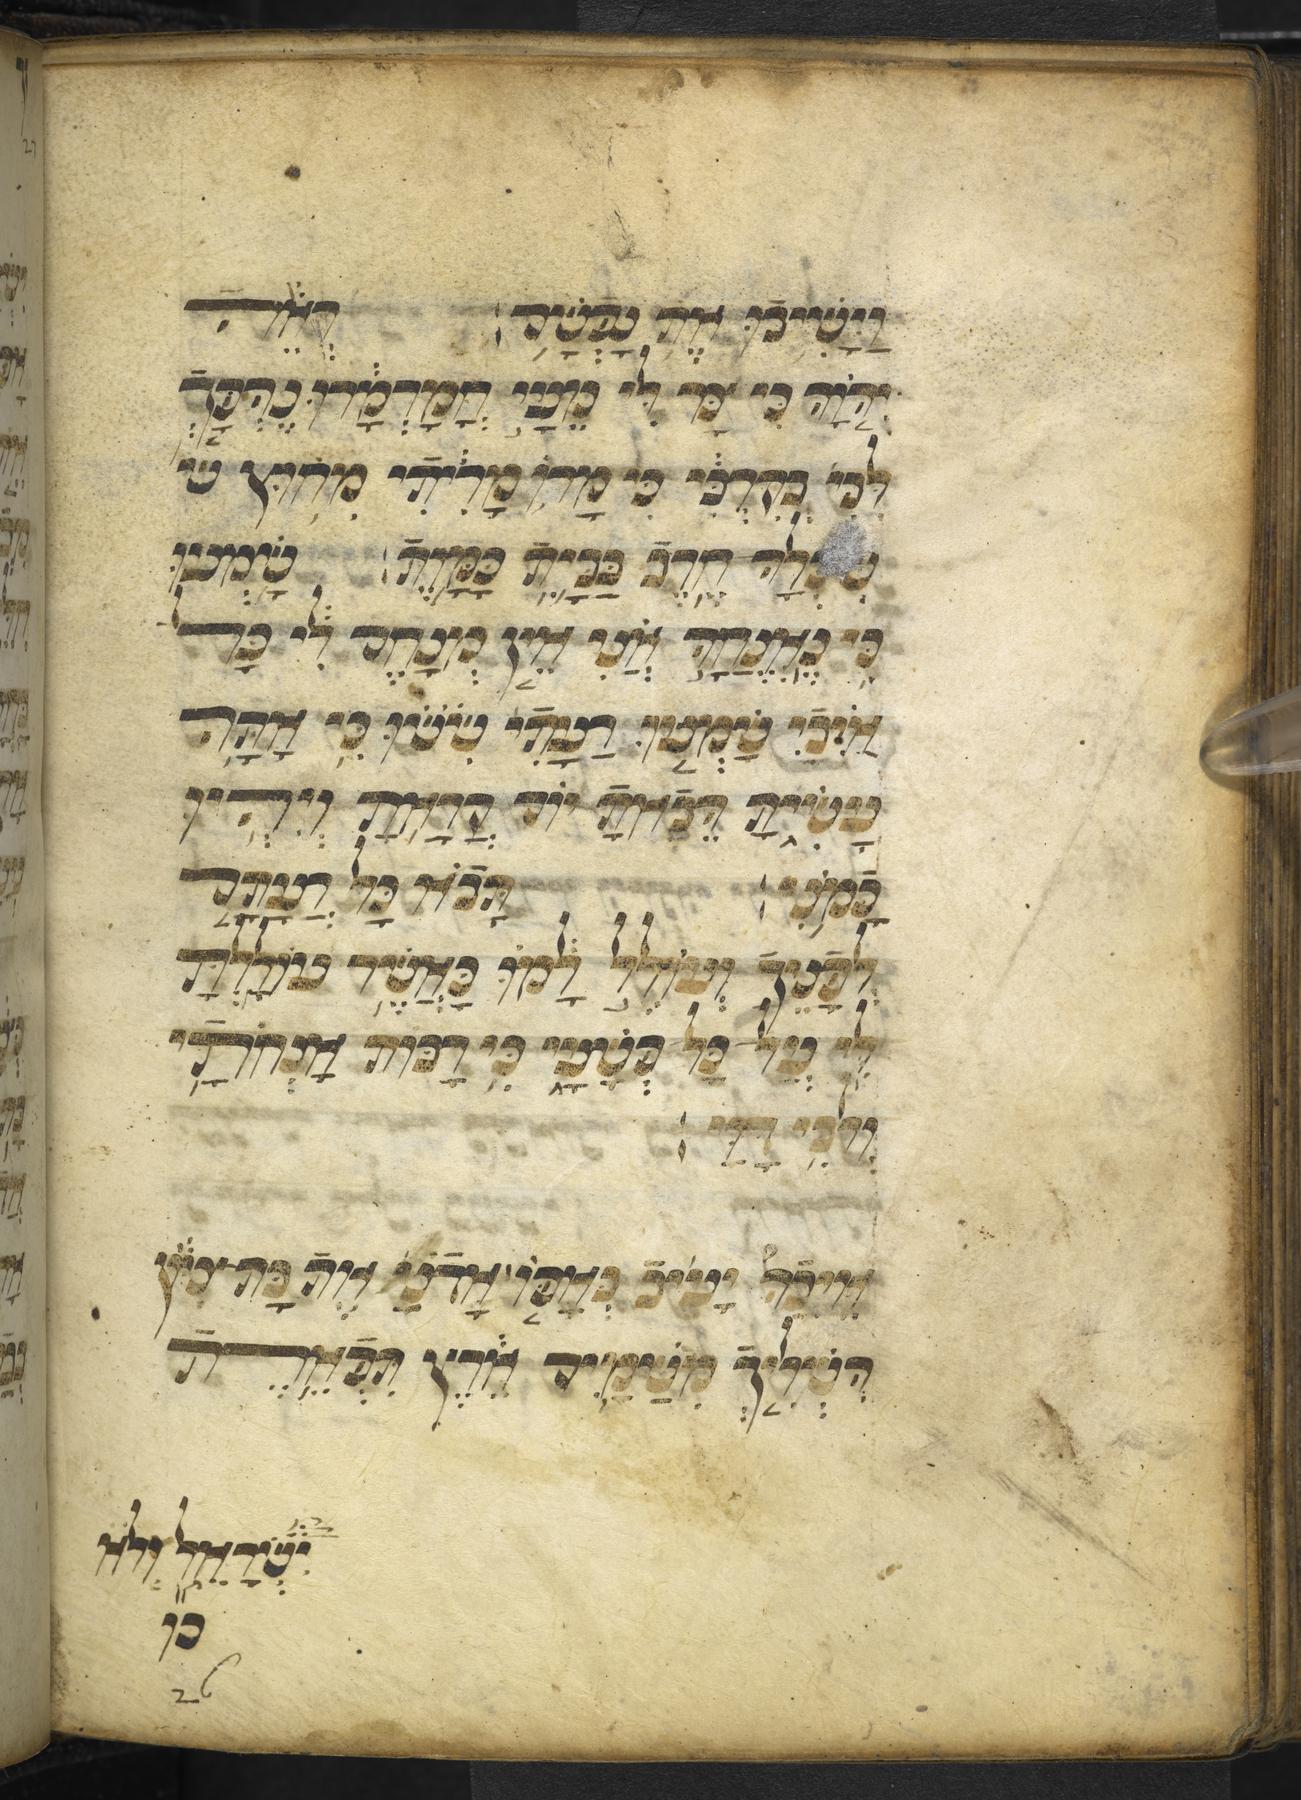 וְיָשִׁיבוּ אֶת נַפְשָׁם׃ רְאֵה
יְהֹוָה כִּי צַר לִי מֵעַי חֳמַרְמָרוּ נֶהְפַּךְ
לִבִּי בְּקִרְבִּי כִּי מָרוֹ מָרִיתִי מִחוּץ שִׁ
שִׁכְּלָה חֶרֶב בַּבַּיִת כַּמָּוֶת׃ שָׁמְעוּ
כִּי נֶאֱנָחָה אָנִי אֵין מְנַחֵם לִי כָּל
אֹיְבַי שָׁמְעוּ רָעָתִי שָׂשׂוּ כִּי אַתָּה
עָשִׂיתָ הֵבֵאתָ יוֹם קָרָאתָ וְיִהְיוּ
כָמוֹנִי׃ תָּבֹא כָל רָעָתָם
לְפָנֶיךָ וְעוֹלֵל לָמוֹ כַּאֲשֶׁר עוֹלַלְתָּ
לִי עַל כָּל פְּשָׁעָי כִּי רַבּוֹת אַנְחֹתַי
וְלִבִּי דַוָּי׃
אֵיכָה יָעִיב בְּאַפּוֹ אֲדֹנָי אֶת בַּת צִיּוֹן
הִשְׁלִיךְ מִשָּׁמַיִם אֶרֶץ תִּפְאֶרֶת
יִשְׂרָאֵל וְלֹא
כו
26